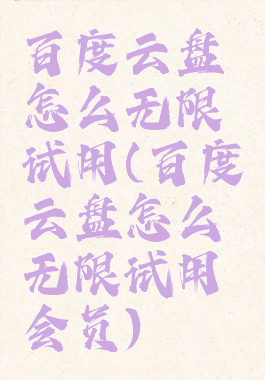 百度云盘
怎么无限
试用(百度
云盘怎么
无限试用
会员)